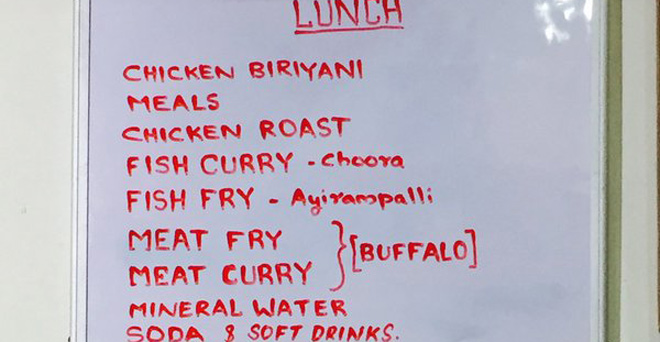 LUNCH
CHICKEN BIRIYANI
MEALS
CHICKEN ROAST
FISH CURRY - Choora
FISH FRY - Ayirampalli
MEAT FRY
MEAT CURRY } [BUFFALO]
MINERAL WATER
SODA & SOFT DRINKS.